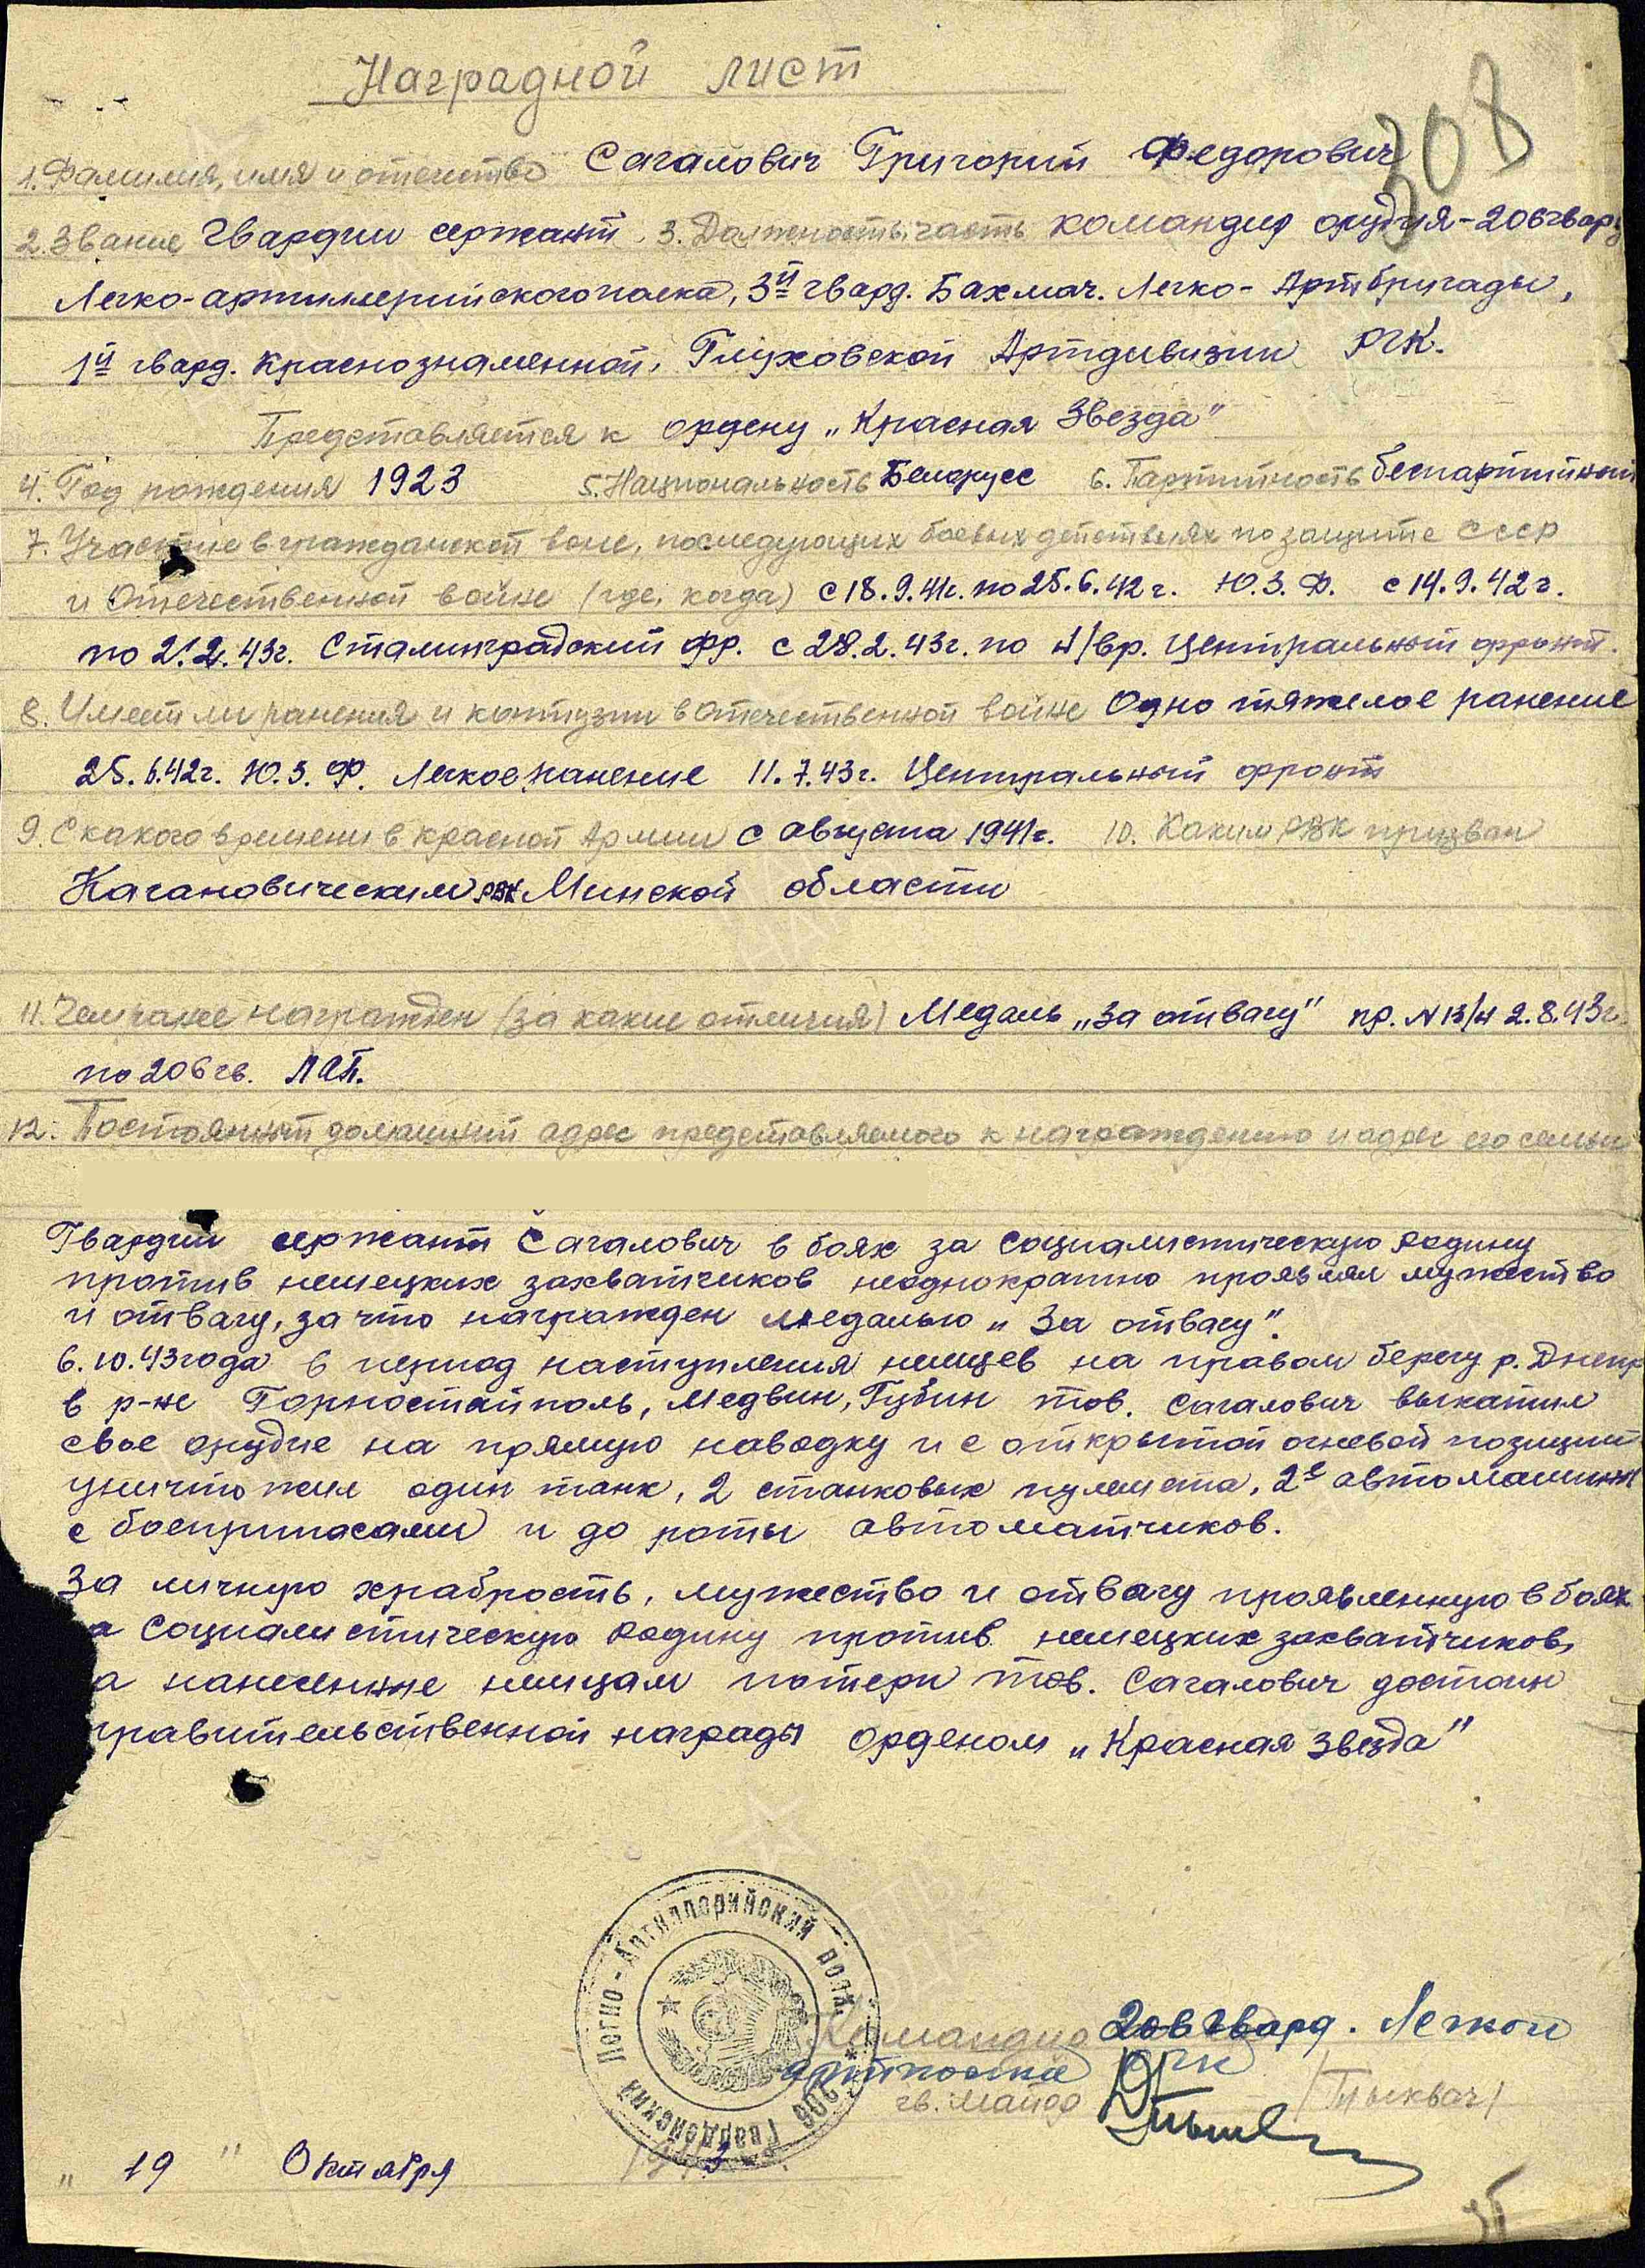 Наградной лист
308
1. Фамилия, имя и отчество Сагалович Григорий Федорович
2. Звание Гвардии сержант 3. Должность, часть командир орудия - 206 гвард.
Легко-артиллерийского полка, 3й гвард. Бахмач. Легко-Артбригады,
1й гвард. Краснознаменной, Глуховской Артдивизии РГК.
Представляется к ордену „Красная Звезда"
4. Год рождения 1923 5. Национальность Белорусс 6. Партийность беспартийный
7. Участие в гражданской воне, последующих боевых действиях по защите СССР
и Отечественной войне (где, когда) с 18.9.41г. по 25.6.42г. Ю.З.Ф. с 14.9.42г.
по 2.2.43г. Сталинградский фр. с 28.2.43г. по н/вр. Центральный фронт.
8. Имеет ли ранения и контузии в Отечественной войне Одно тяжелое ранение
25.6.42г. Ю.З.Ф. Легкое ранение 11.7.43г. Центральный фронт
9. С какого времени в красной Армии с августа 1941г. 10. Каким РВК призван
Кагановическим РВК Минской области
11. Чем ранее награжден (за какие отличия) Медаль „За отвагу" пр. N 13/н 2.8.43г.
по 206 гв. ЛАП.
12. Постоянный домашний адрес представляемого к награждению и адрес его семьи
Гвардии сержант Сагалович в боях за социалистическую Родину
против немецких захватчиков неоднократно проявлял мужество
и отвагу, за что награжден медалью „За отвагу".
6.10.43 года в период наступления немцев на правом берегу р. Днепр
в р-не Горностайполь, Медвин, Губин тов. Сагалович выкатил
свое орудие на прямую наводку и с открытой огневой позиции
уничтожил один танк, 2 станковых пулемета, 2е автомашины
с боеприпасами и до роты автоматчиков.
За личную храбрость, мужество и отвагу проявленную в боях
а Социалистическую Родину против немецких захватчиков,
а нанесенные немцам потери тов. Сагалович достоин
равительственной награды орденом „Красная Звезда"
206 Гвардейский Легко-Артиллерийский полк
Командир 206 гвард. Легкой
артполка РГК
гв. майор /Тыквач/
„ 19 " Октября 1943